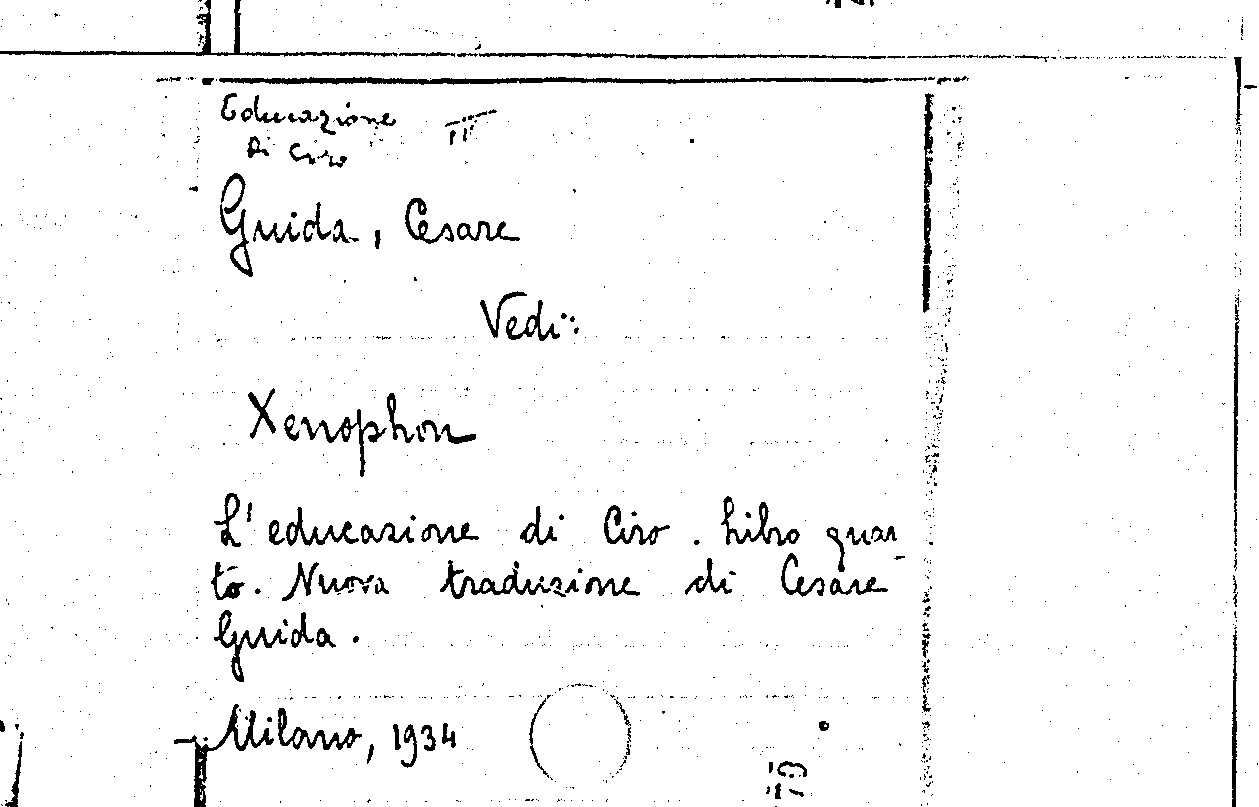 Educazione
di Ciro
Guida, Cesare
Vedi:
Xenophon
L'educazione di Ciro. Libro quar-
to. Nuova traduzione di Cesare
Guida.
Milano, 1934